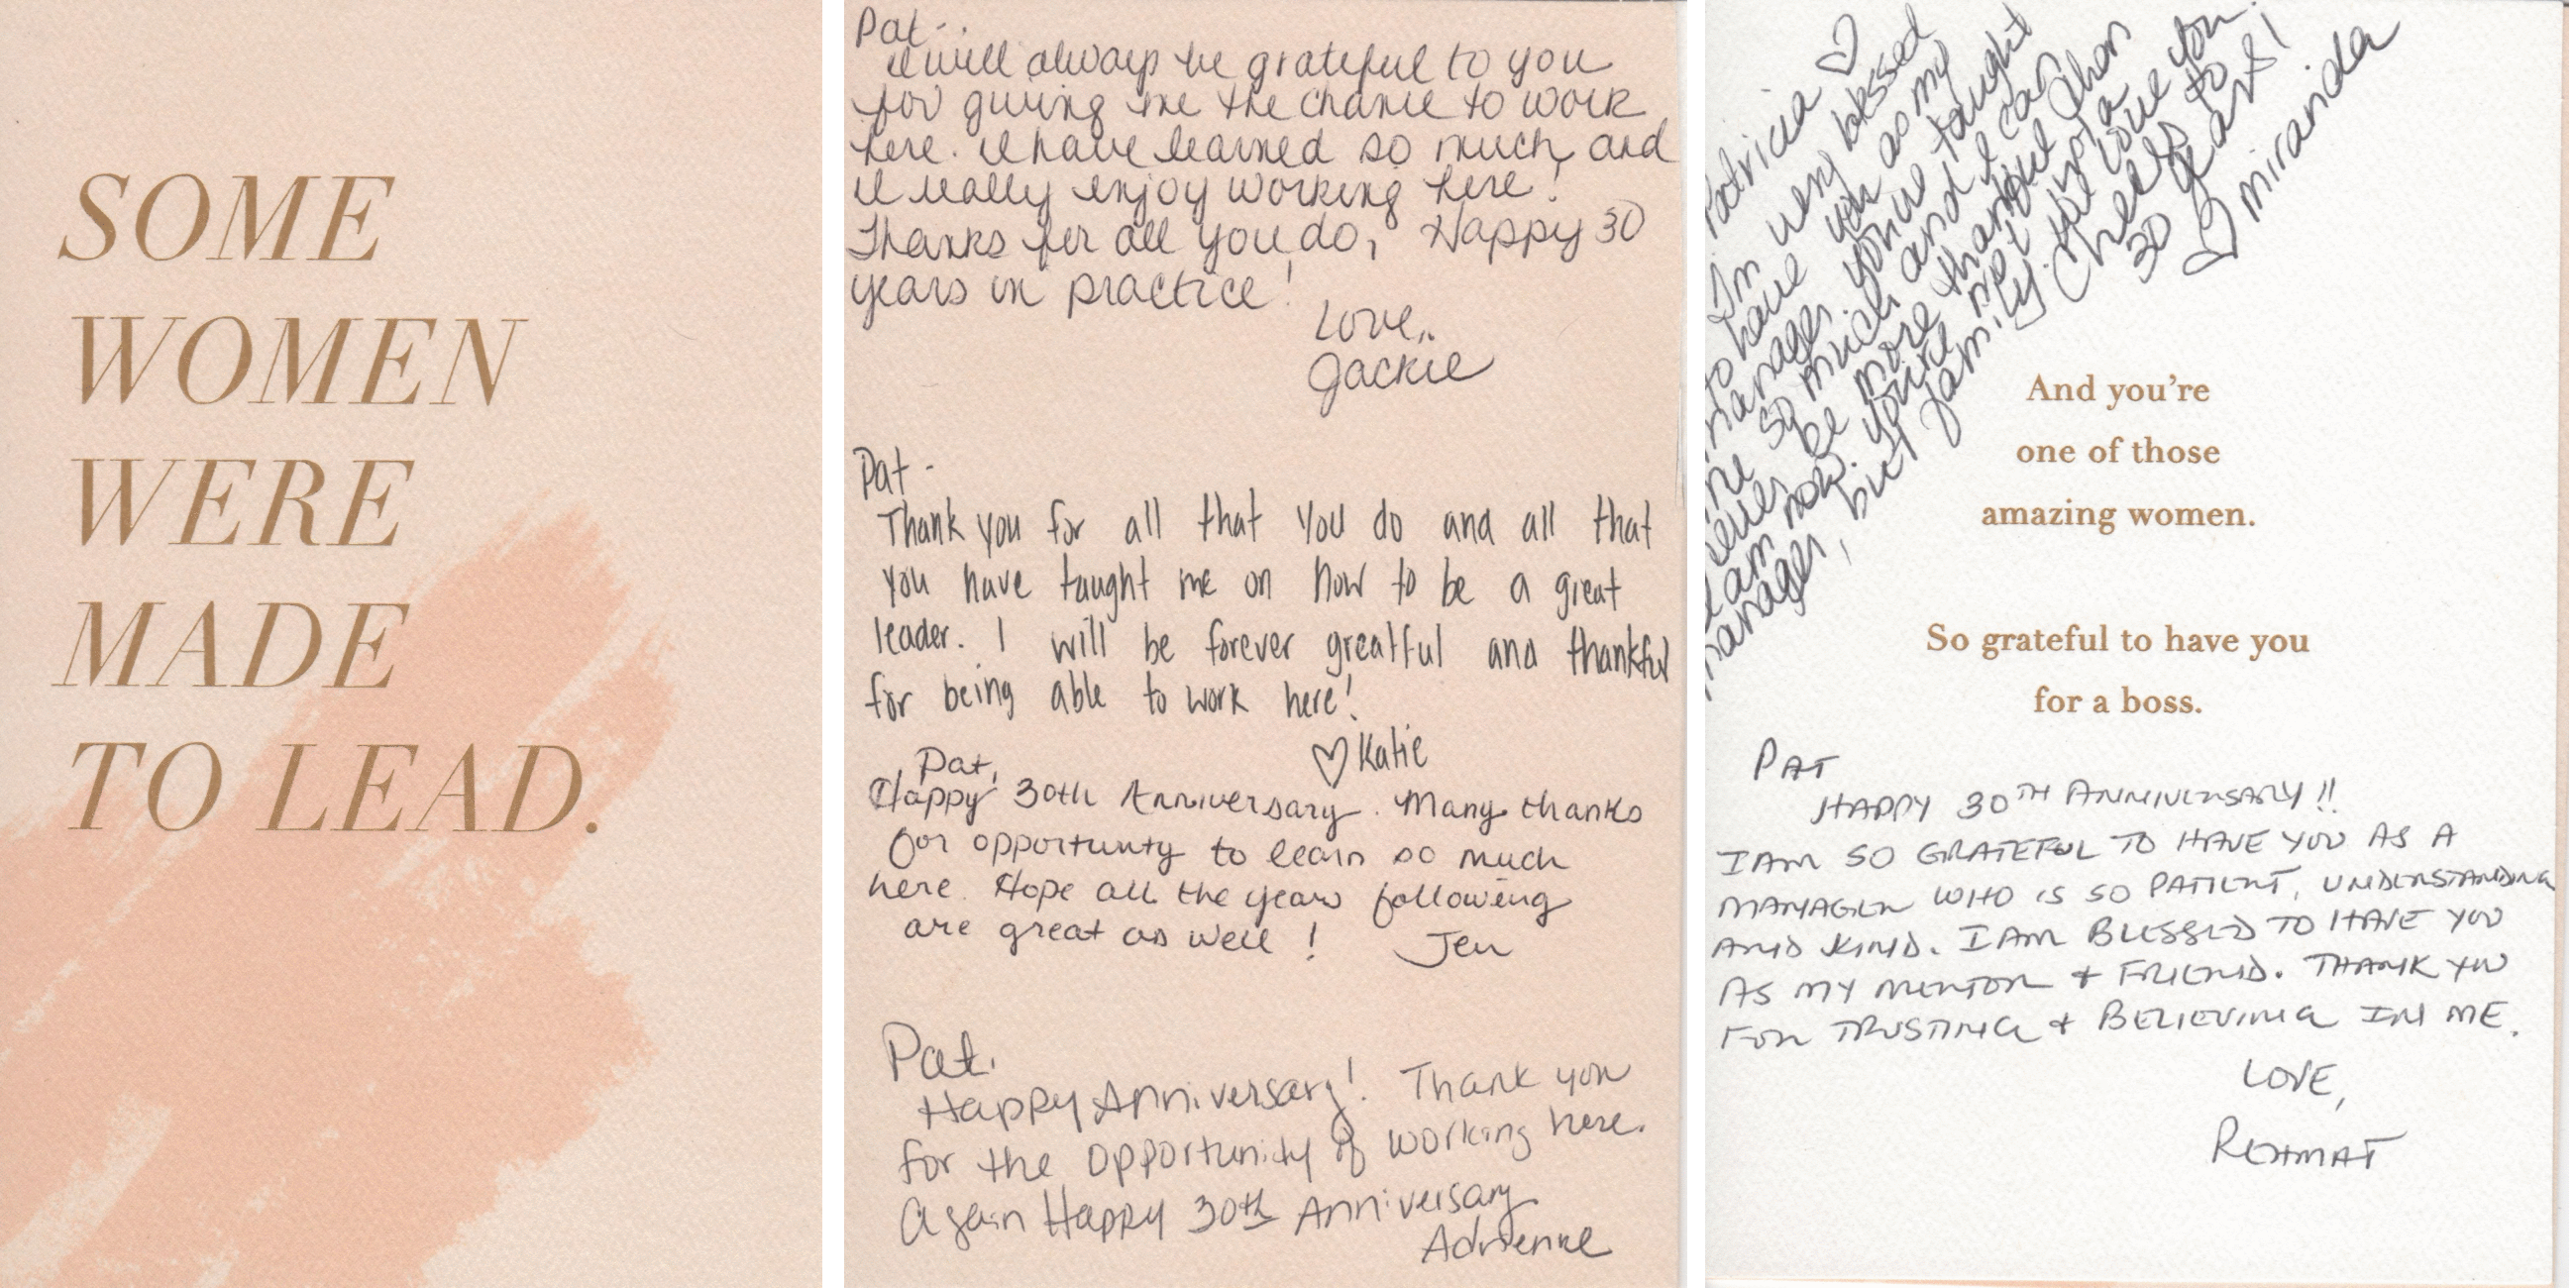 SOME
WOMEN
WERE
MADE
TO LEAD.
Pat-
I will always be grateful to you
for giving me the chance to work
here. I have learned so much, and
I really enjoy working here!
Thanks for all you do, Happy 30
years in practice!
Love,
Jackie
Pat -
Thank you for all that you do and all that
you have taught me on how to be a great
leader. I will be forever greatful and thankful
for being able to work here!
♡ Katie
Pat,
Happy 30th Anniversary. Many thanks
for opportunty to learn so much
here. Hope all the years following
are great as well! Jen
Pat.
Happy Anniversary! Thank you
for the opportunity of working here.
Again Happy 30th Anniversary
Adrienne
Patricia ♡
I'm very blessed
to have you as my
manager. You've taught
me so much and I can
never be more thankful than
I am now. You're not just a
manager, but family. We love you.
Cheers to
30 years!
♡ miranda
And you're
one of those
amazing women.
So grateful to have you
for a boss.
PAT
HAPPY 30TH ANNIVERSARY!!
I AM SO GRATEFUL TO HAVE YOU AS A
MANAGER WHO IS SO PATIENT, UNDERSTANDING
AND KIND. I AM BLESSED TO HAVE YOU
AS MY MENTOR & FRIEND. THANK YOU
FOR TRUSTING & BELIEVING IN ME.
LOVE,
REHMAT